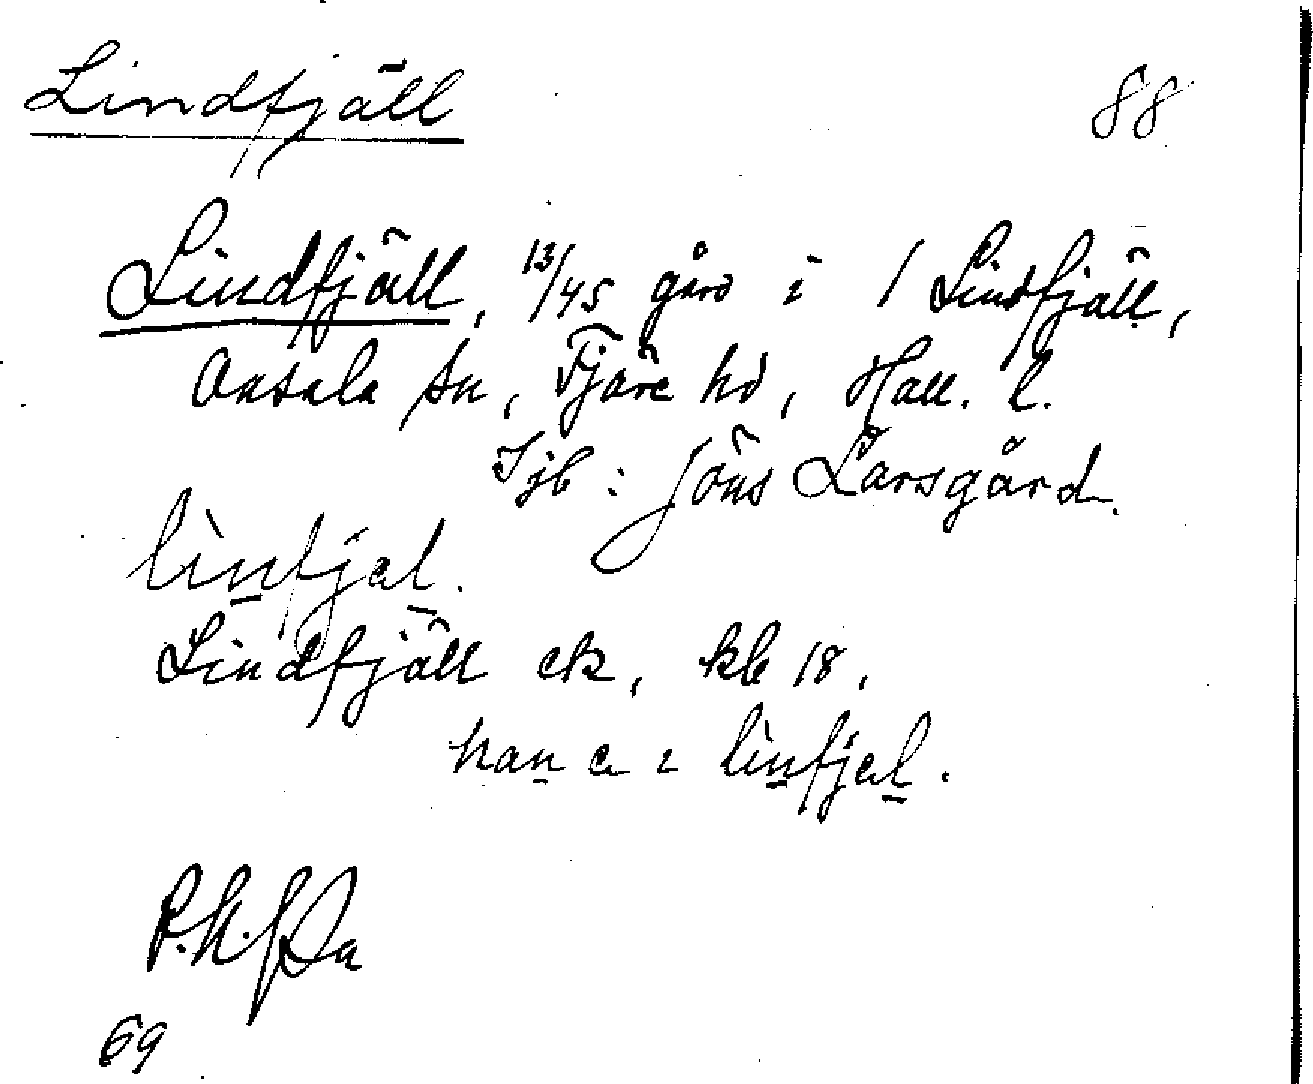 Lindfjäll 88
Lindfjäll, 13/45 gård i 1 Lindfjäll,
Onsala sn, Fjäre hd, Hall. l.
Ijb : Jöns Larsgård.
lìnfjal.
Lindfjäll ek, kb 18,
han a i lìnfjal.
69